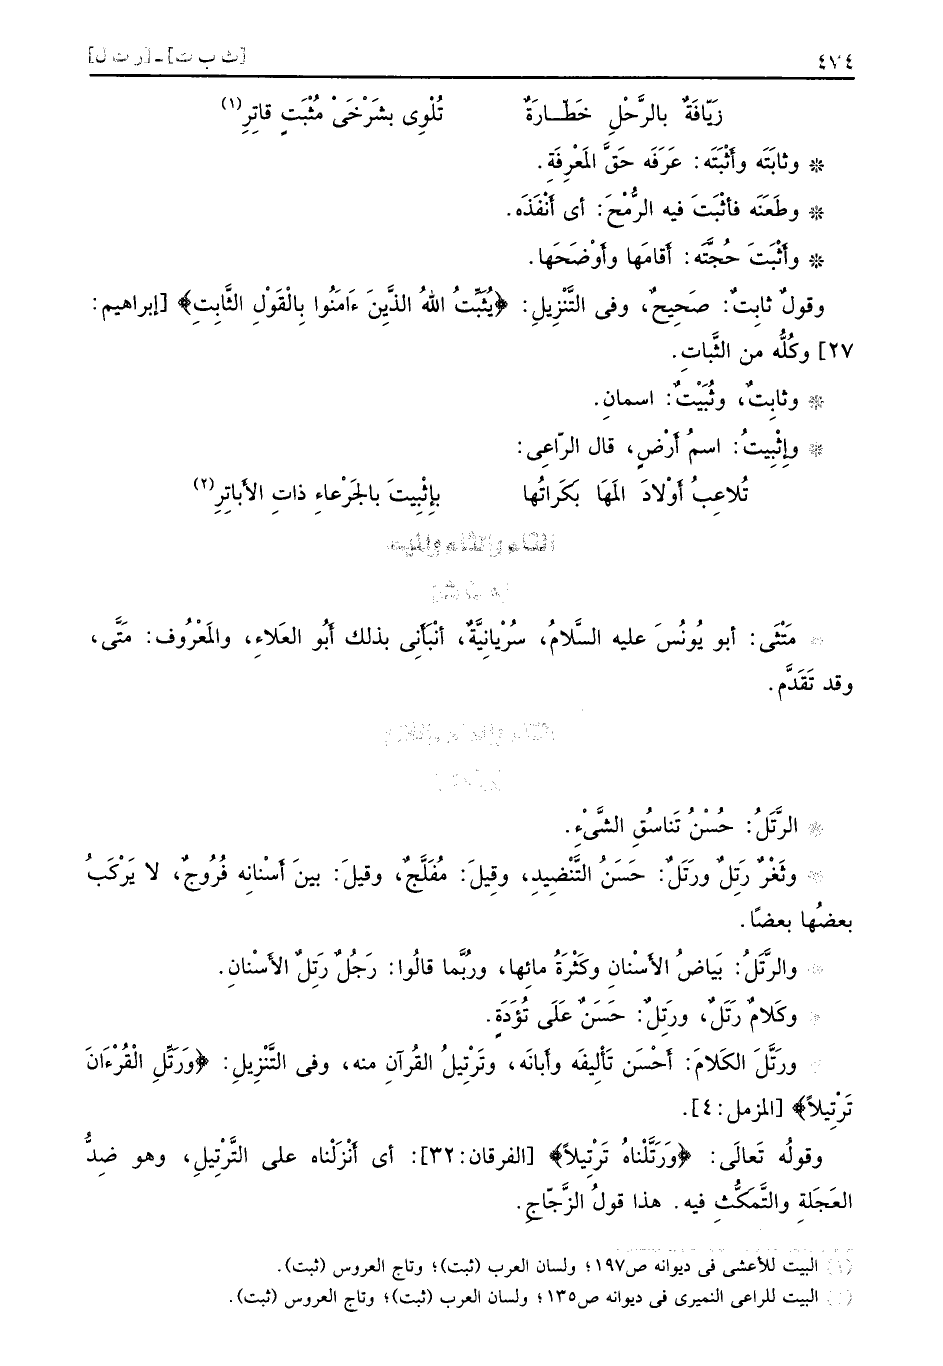 ٤٧٤ [ث ب ت] ـ [ر ت ل]
زَيّافَةٌ بالرَّحْلِ خَطّـارَةٌ تُلْوِى بشَرْخَىْ مُثْبَتٍ قاتِرِ(١)
* وثابَتَه وأَثْبَتَه: عَرَفَه حَقَّ المَعْرِفَةِ.
* وطَعَنَه فأثْبَتَ فيه الرُّمْحَ: أى أَنْفَذَه.
* وأَثْبَتَ حُجَّتَه: أقامَها وأوْضَحَها.
وقولٌ ثابتٌ: صَحِيحٌ، وفى التَّنْزِيلِ: ﴿يُثَبِّتُ اللهُ الذَّينَ ءَامَنُوا بِالْقَوْلِ الثَّابِتِ﴾ [إبراهيم:
٢٧] وكُلُّه من الثَّباتِ.
* وثابِتٌ، وثُبَيْتٌ: اسمانِ.
* وإثْبِيتُ: اسمُ أَرْضٍ، قال الرّاعِى:
تُلاعِبُ أوْلادَ المَهَا بَكَراتُها بإثْبِيتَ بالجَرْعاءِ ذاتِ الأباتِرِ(٢)
التاء والثاء والميم
* مَتْثَى: أبو يُونُسَ عليه السَّلامُ، سُرْيانِيَّةٌ، أنْبَأنِى بذلك أبُو العَلاءِ، والمَعْرُوف: مَتَّى،
وقد تَقَدَّم.
* الرَّتَلُ: حُسْنُ تَناسُقِ الشَّىْءِ.
* وثَغْرٌ رَتِلٌ ورَتَلٌ: حَسَنُ التَّنْضِيدِ، وقِيلَ: مُفَلَّجٌ، وقيلَ: بينَ أسْنانِه فُرُوجٌ، لا يَرْكَبُ
بعضُها بعضًا.
* والرَّتَلُ: بَياضُ الأسْنانِ وكَثْرَةُ مائها، ورُبَّما قالُوا: رَجُلٌ رَتِلُ الأسْنانِ.
* وكَلامٌ رَتَلٌ، ورَتِلٌ: حَسَنٌ عَلَى تُؤَدَةٍ.
* ورَتَّلَ الكَلامَ: أحْسَن تَأْليفَه وأبانَه، وتَرْتِيلُ القُرآنِ منه، وفى التَّنْزِيلِ: ﴿وَرَتِّلِ الْقُرْءَانَ
تَرْتِيلاً﴾ [المزمل:٤].
وقولُه تَعالَى: ﴿وَرَتَّلْناهُ تَرْتِيلاً﴾ [الفرقان:٣٢]: أى أنْزَلْناه على التَّرْتِيلِ، وهو ضِدُّ
العَجَلَةِ والتَّمَكُّثِ فيه. هذا قولُ الزَّجّاجِ.
(١) البيت للأعشى فى ديوانه ص١٩٧؛ ولسان العرب (ثبت)؛ وتاج العروس (ثبت).
(٢) البيت للراعى النميرى فى ديوانه ص١٣٥؛ ولسان العرب (ثبت)؛ وتاج العروس (ثبت).